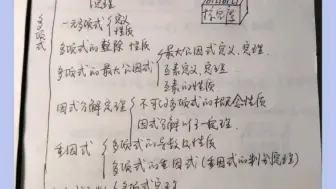 定理
标准型
一元多项式 定义
性质
多项式的整除性质
多项式的最大公因式 最大公因式定义、定理
互素定义、定理
互素的性质
因式分解定理 不可约多项式的概念性质
因式分解唯一定理
重因式 多项式的导数及性质
多项式的重因式(重因式的判别定理)
多项式